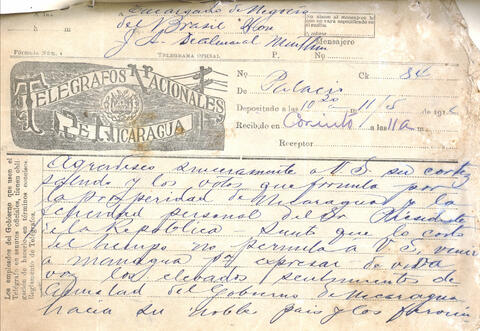 Encargado de Negocios
del Brasil Hon
J.
No abone al mensajero lo
que no vaya especificado en
Mensajero
Fórmula Núm.
TELEGRAMA OFICIAL
P. No.
TELÉGRAFOS NACIONALES
DE NICARAGUA
No Ck 84
De Palacio
Depositado a las 10 20 11/5 de 191
Recibido en Corinto a las 11 a m
Receptor
Agradesco sinceramente a V S su cortez
saludo y los votos que formula por
la prosperidad de Nicaragua y la
felicidad personal del Sr Presidente
de la Republica Siento que lo corto
del tiempo no permita a V S, venir
a managua por expresar de viva
voz los elevados sentimientos de
amistad del Gobierno de Nicaragua
hacia su noble pais y los
Los empleados del Gobierno que usen el
Telégrafo en asuntos oficiales, tienen obli-
gación de hacerlo, en términos concisos
Reglamento de Telégrafos.